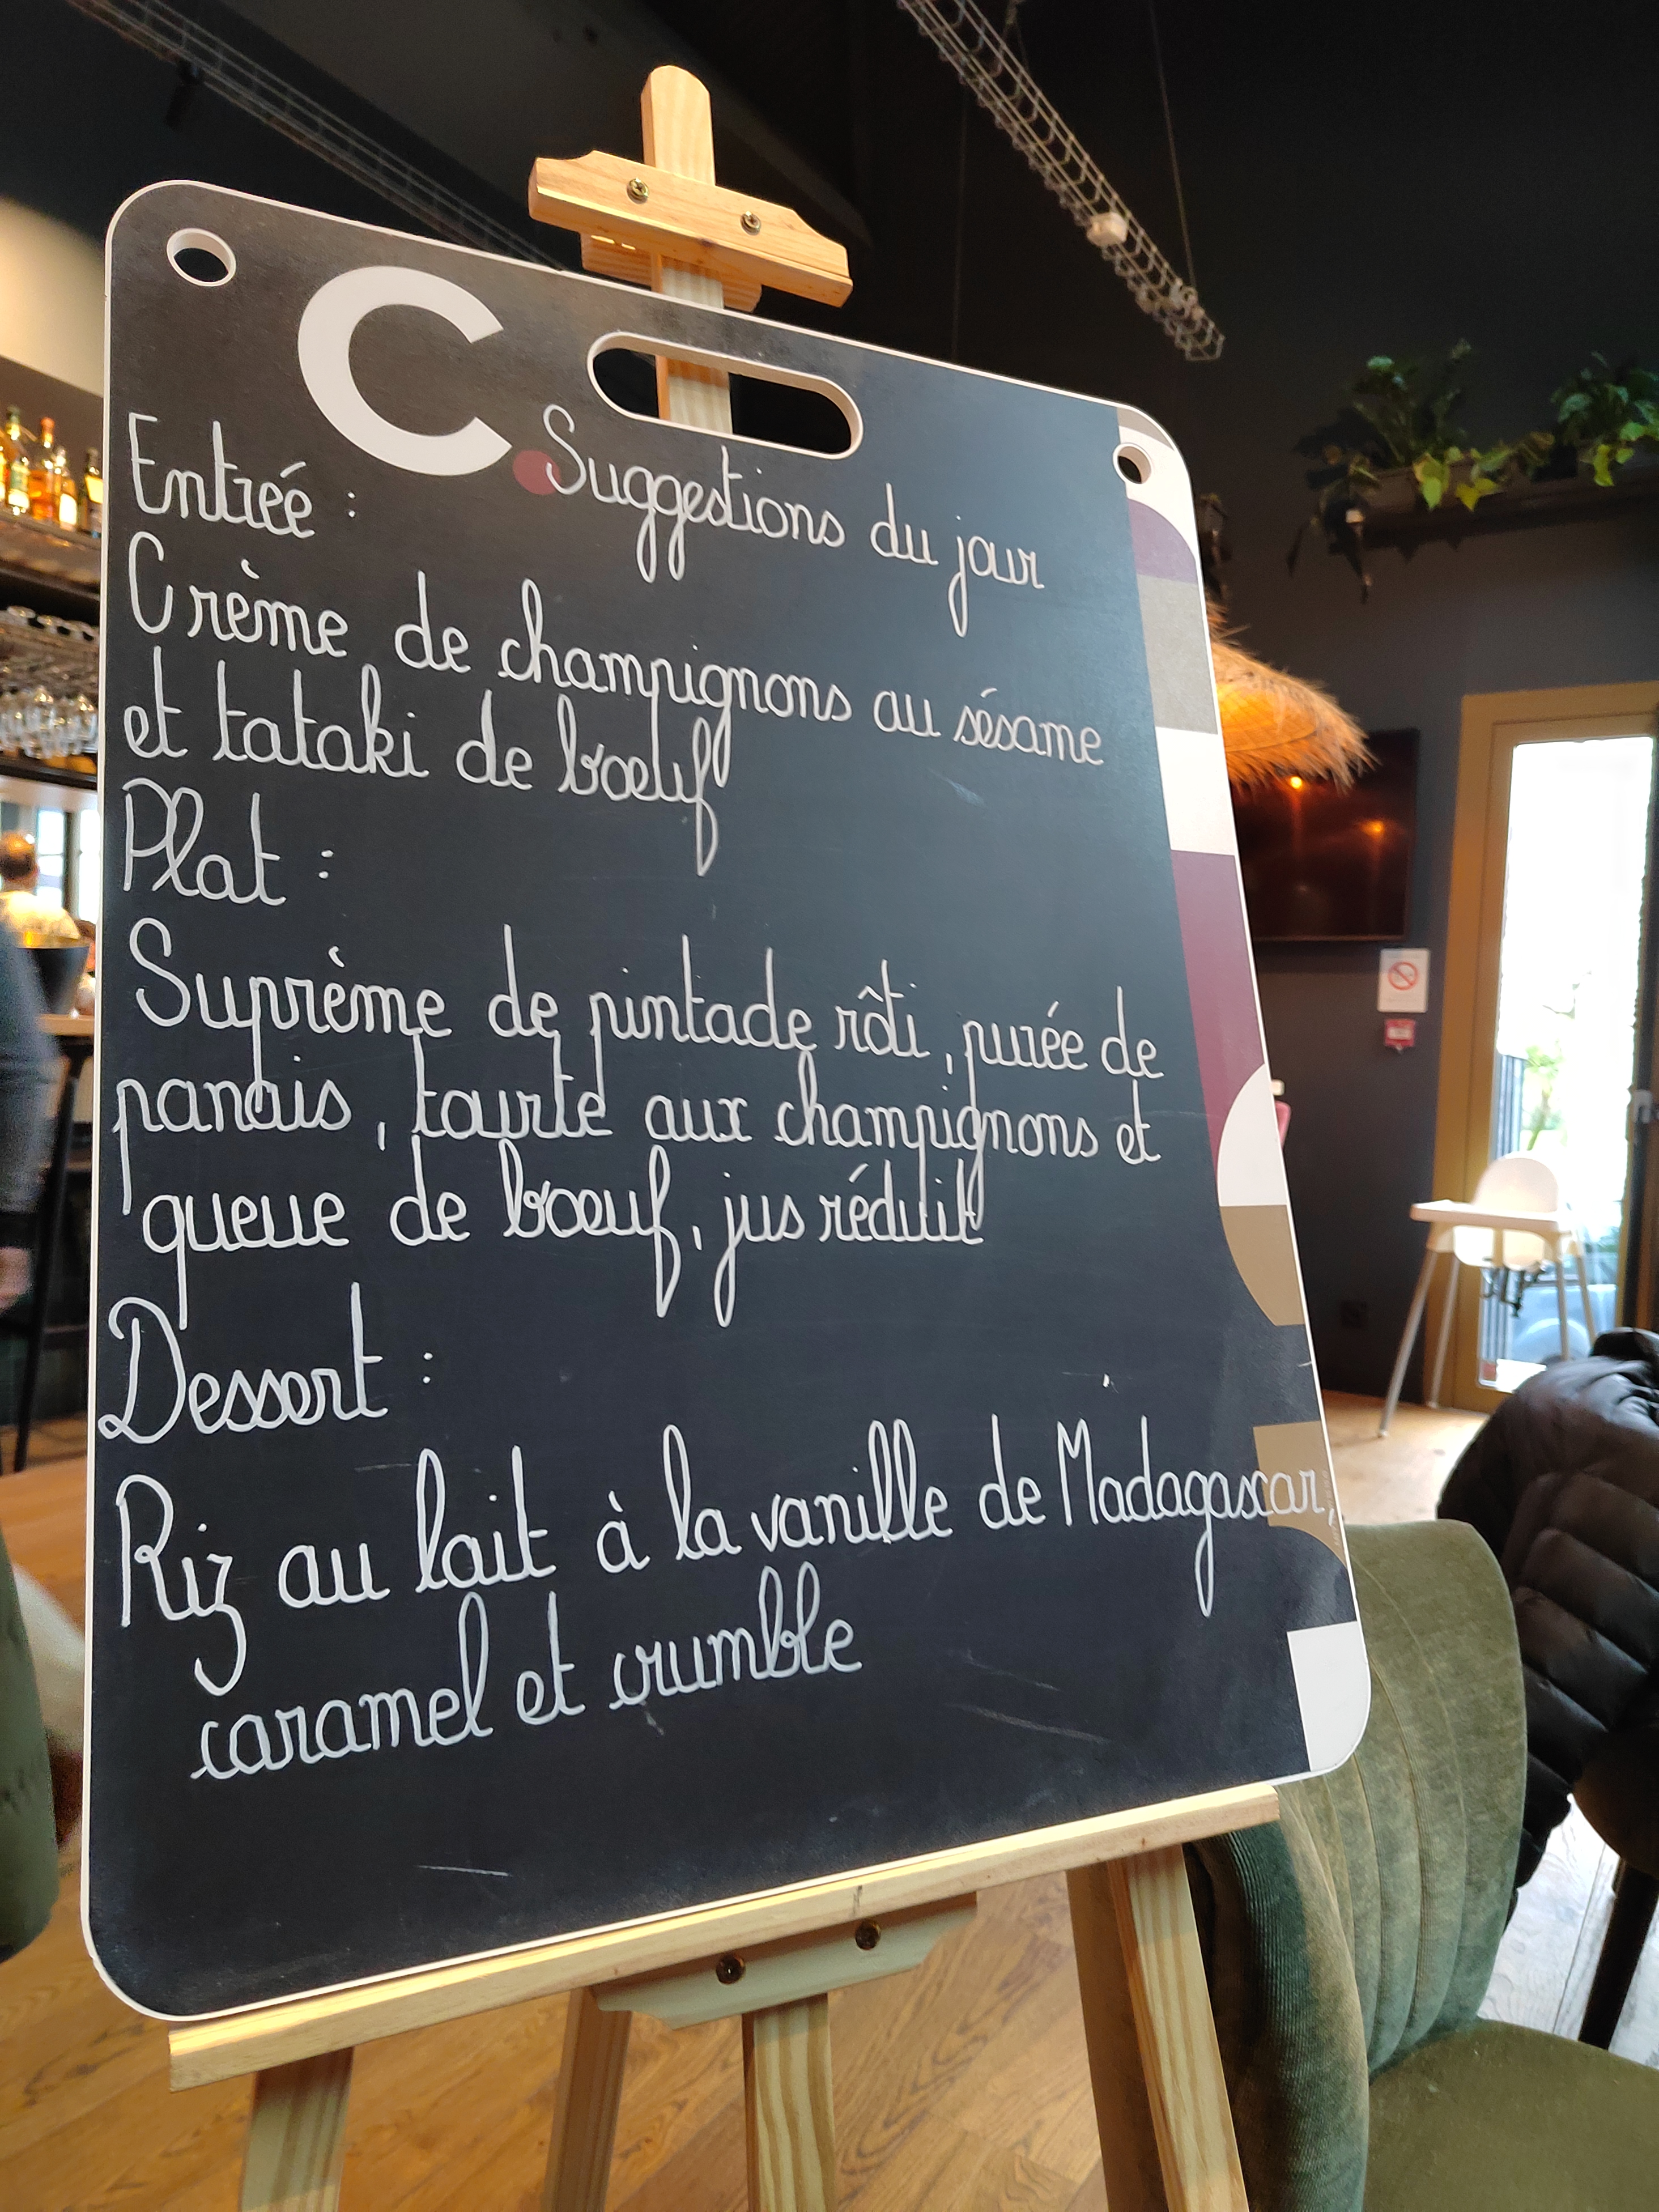 C.
Suggestions du jour
Entrée :
Crème de champignons au sésame
et tataki de bœuf
Plat :
Suprème de pintade rôti, purée de
panais, tourte aux champignons et
queue de bœuf, jus réduit
Dessert :
Riz au lait à la vanille de Madagascar,
caramel et crumble